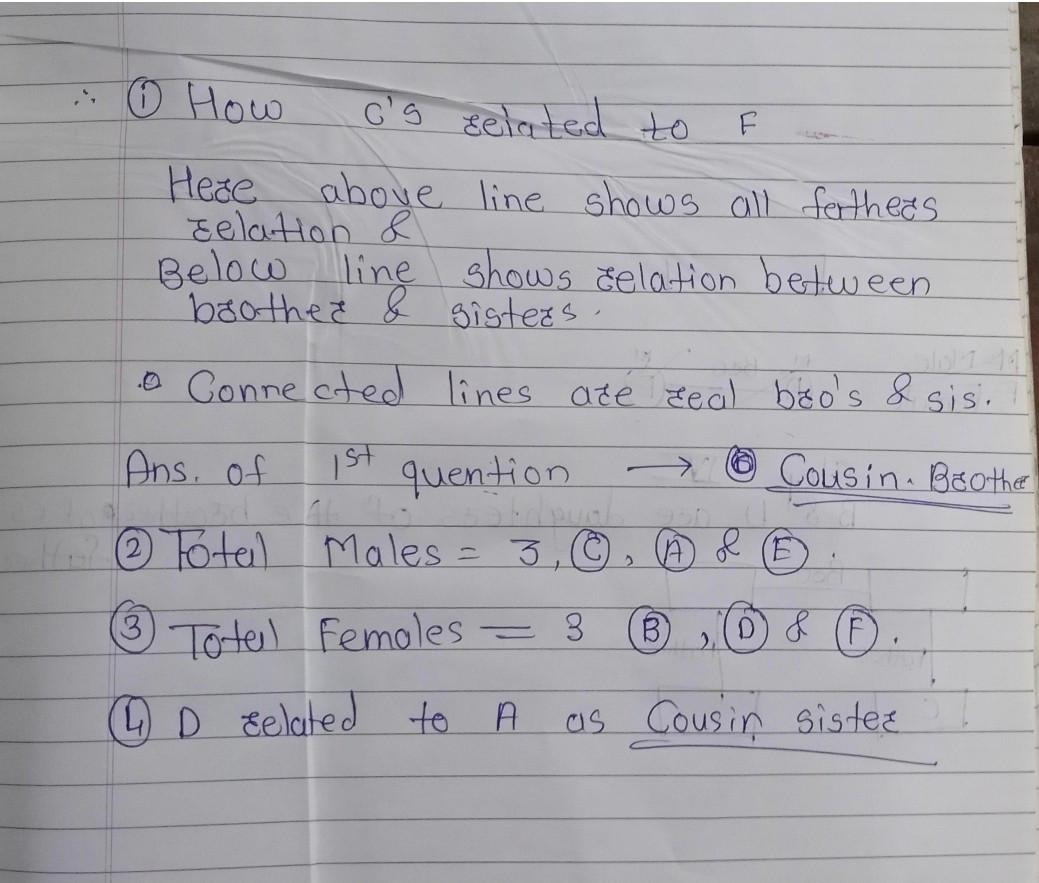 ∴ ① How C's related to F
Here above line shows all ferthers
relation &
Below line shows relation between
brother & sisters.
Connected lines are real bro's & sis.
Ans. of 1st quention → ⑥ Cousin. Brothe
② Total Males = 3, Ⓒ, Ⓐ & Ⓔ.
③ Total Females = 3 Ⓑ, Ⓓ & Ⓕ.
④ D related to A as Cousin sister